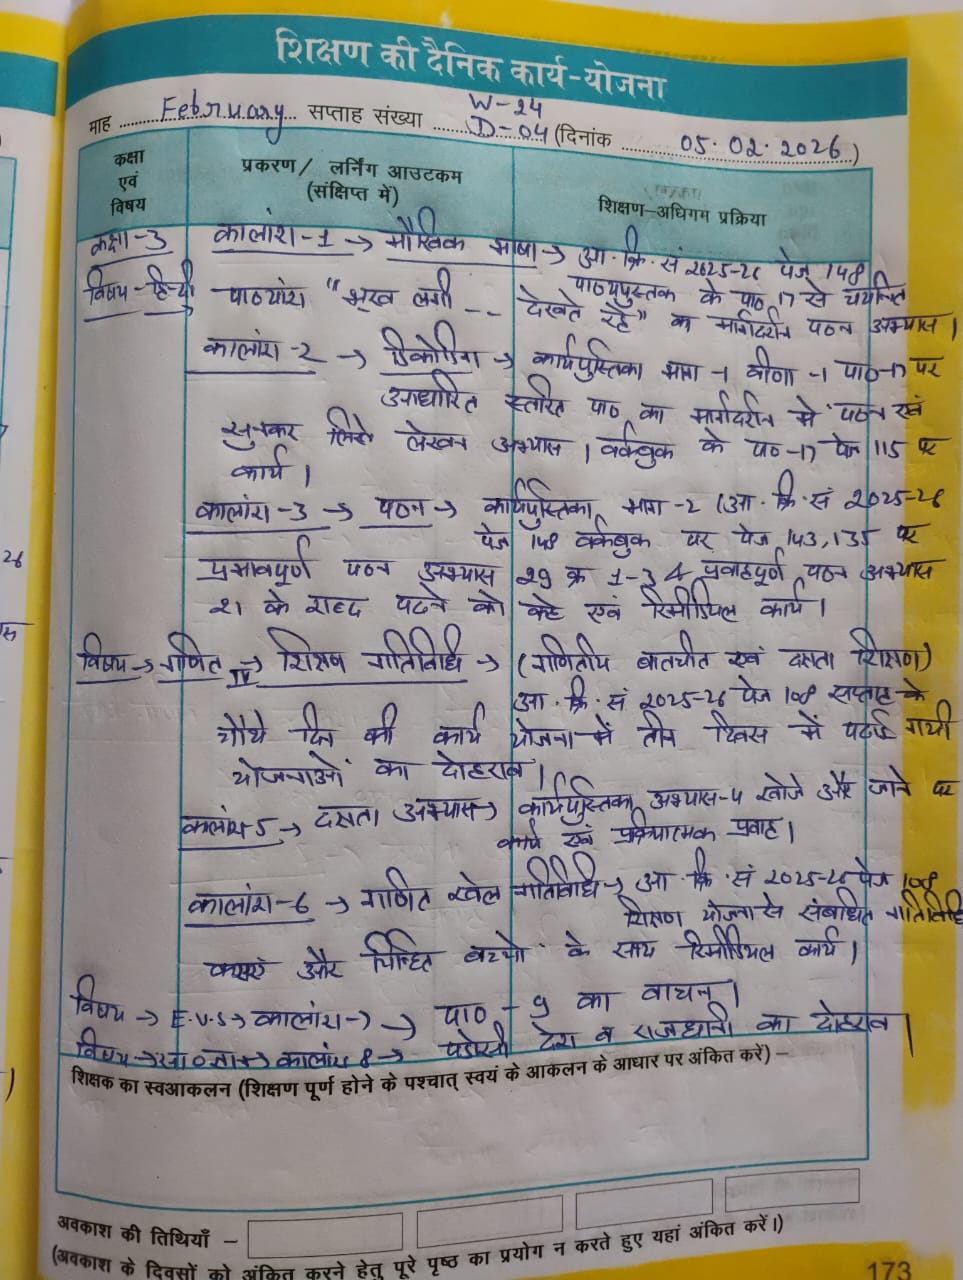 शिक्षण की दैनिक कार्य-योजना
माह February सप्ताह संख्या W-24 D-04 (दिनांक 05.02.2026)
कक्षा एवं विषय
प्रकरण/ लर्निंग आउटकम (संक्षिप्त में)
शिक्षण-अधिगम प्रक्रिया
कक्षा-3 कालांश-1 → मौखिक भाषा → आ. क्रि. सं 2025-26 पेज 148
विषय-हिन्दी पाठ्यपुस्तक के पाठ 17 से चयनित
पाठ्यांश "भूख लगी -- देखते रहे" का मार्गदर्शन पठन अभ्यास।
कालांश-2 → डिकोडिंग → कार्यपुस्तिका भाग-1 वीणा-1 पाठ-17 पर
आधारित स्तरित पाठ का मार्गदर्शन में पठन एवं
सुनकर लिखे लेखन अभ्यास। वर्कबुक के पा०-17 पेज 115 पर
कार्य।
कालांश-3 → पठन → कार्यपुस्तिका भाग-2 (आ. क्रि. सं 2025-26
पेज 148 वर्कबुक पर पेज 143,135 पर
प्रभावपूर्ण पठन अभ्यास 29 क्र 1-3 & प्रवाहपूर्ण पठन अभ्यास
21 के शब्द पढने को कहे एवं रिमीडियल कार्य।
विषय → गणित IV → शिक्षण गतिविधि → (गणितीय बातचीत एवं दक्षता शिक्षण)
आ. क्रि. सं 2025-26 पेज 108 सप्ताह के
चौथे दिन की कार्य योजना में तीन दिवस में पढाई गयी
योजनाओं का दोहराव।
कालांश-5 → दक्षता अभ्यास → कार्यपुस्तिका अभ्यास-4 खोजे और जाने पर
कार्य एवं प्रक्रियात्मक प्रवाह।
कालांश-6 → गणित खेल गतिविधि → आ. क्रि. सं 2025-26 पेज 108
शिक्षण योजना से संबंधित गतिविधि
कराएं और चिन्हित बच्चो के साथ रिमीडियल कार्य।
विषय → E.V.S → कालांश-7 → पाठ-9 का वाचन।
विषय → सा० ज्ञान → कालांश 8 → पडोसी देश व राजधानी का दोहराव।
शिक्षक का स्वआकलन (शिक्षण पूर्ण होने के पश्चात् स्वयं के आकलन के आधार पर अंकित करें) –
अवकाश की तिथियाँ –
(अवकाश के दिवसों को अंकित करने हेतु पूरे पृष्ठ का प्रयोग न करते हुए यहां अंकित करें।)
173